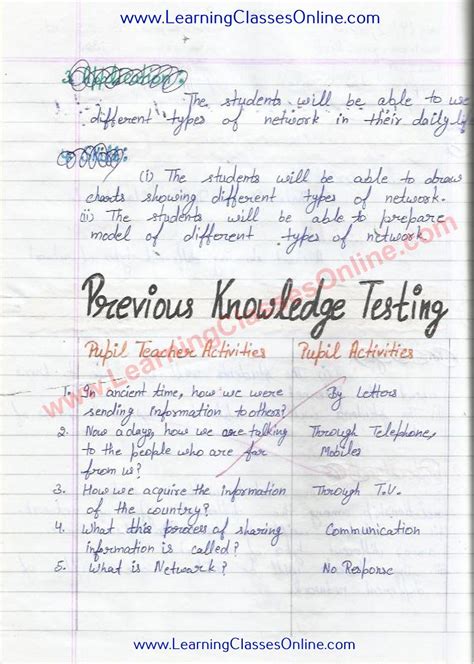 www.LearningClassesOnline.com
3. Application:
The students will be able to use
different types of network in their daily life
4. Skill:
(i) The students will be able to draw
charts showing different types of network.
(ii) The students will be able to prepare
model of different types of network
Previous Knowledge Testing
Pupil Teacher Activities Pupil Activities
1. In ancient time, how we were By Letters
sending information to others?
2. Now a days, how we are talking Through Telephone,
to the people who are far Mobiles
from us?
3. How we acquire the information Through T.V.
of the country?
4. What this process of sharing Communication
information is called?
5. What is Network? No Response
www.LearningClassesOnline.com
www.LearningClassesOnline.com